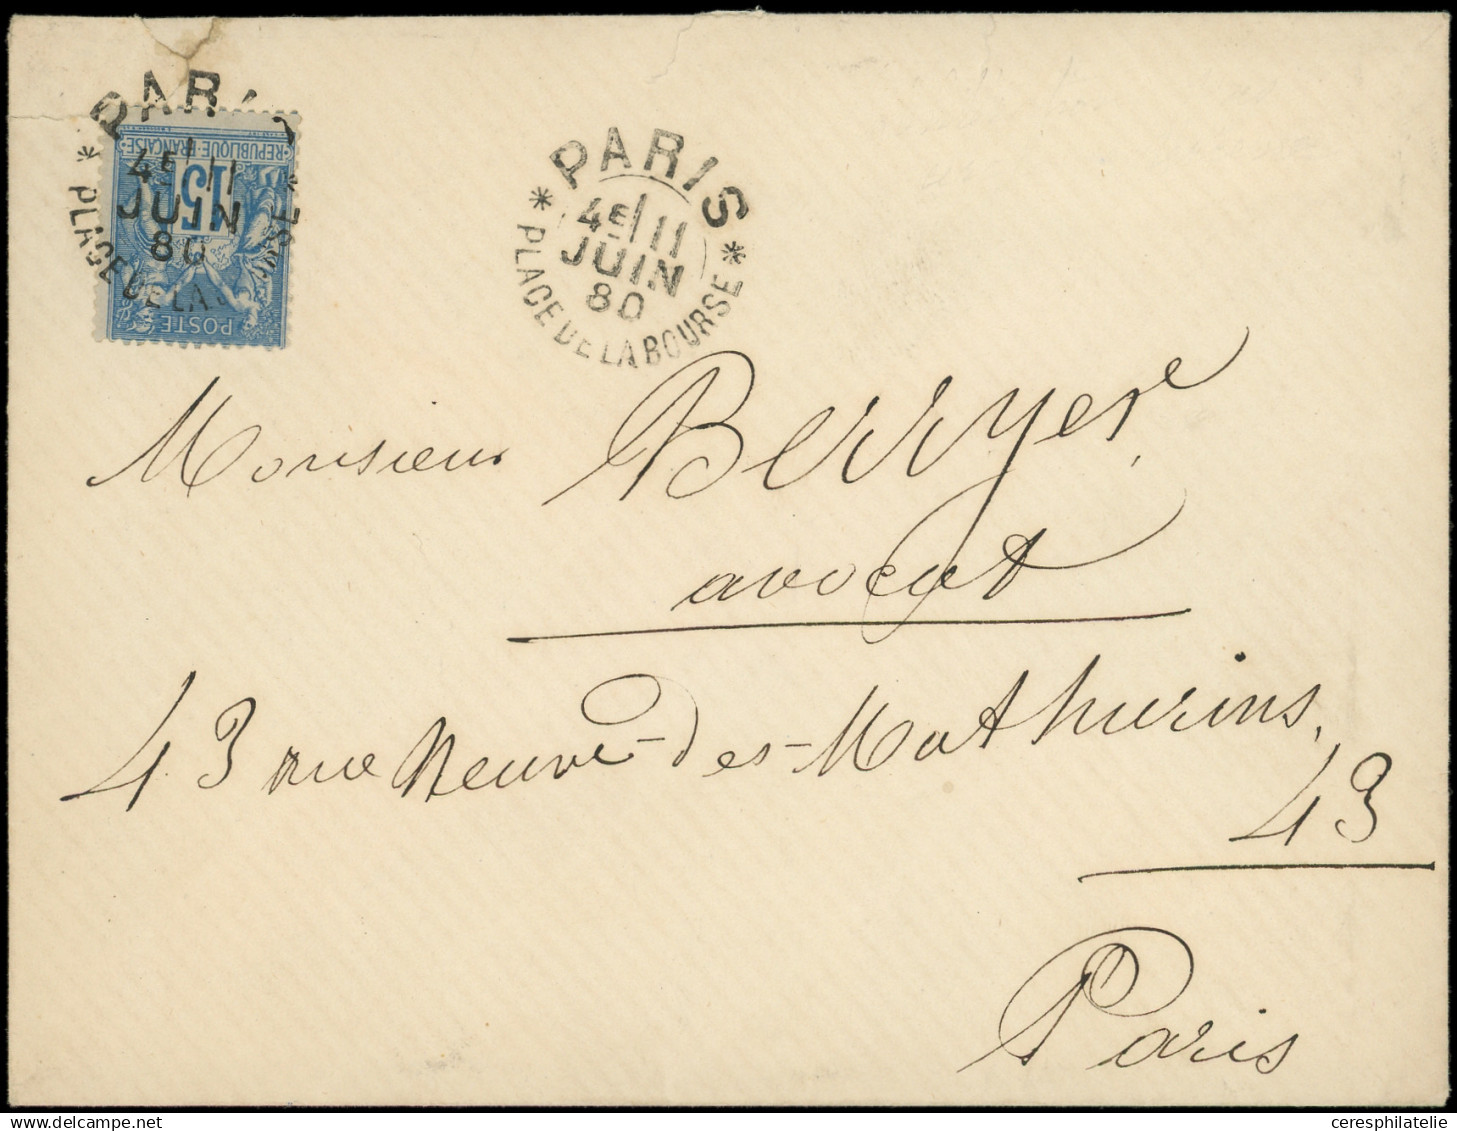 PARIS
4E/11
JUIN
80
* PLACE DE LA BOURSE *
REPUBLIQUE FRANCAISE
15
POSTE
PARIS
4E/11
JUIN
80
* PLACE DE LA BOURSE *
Monsieur Berryer
avocat
43 rue Neuve-des-Mathurins,
43
Paris
ceresphilatelie